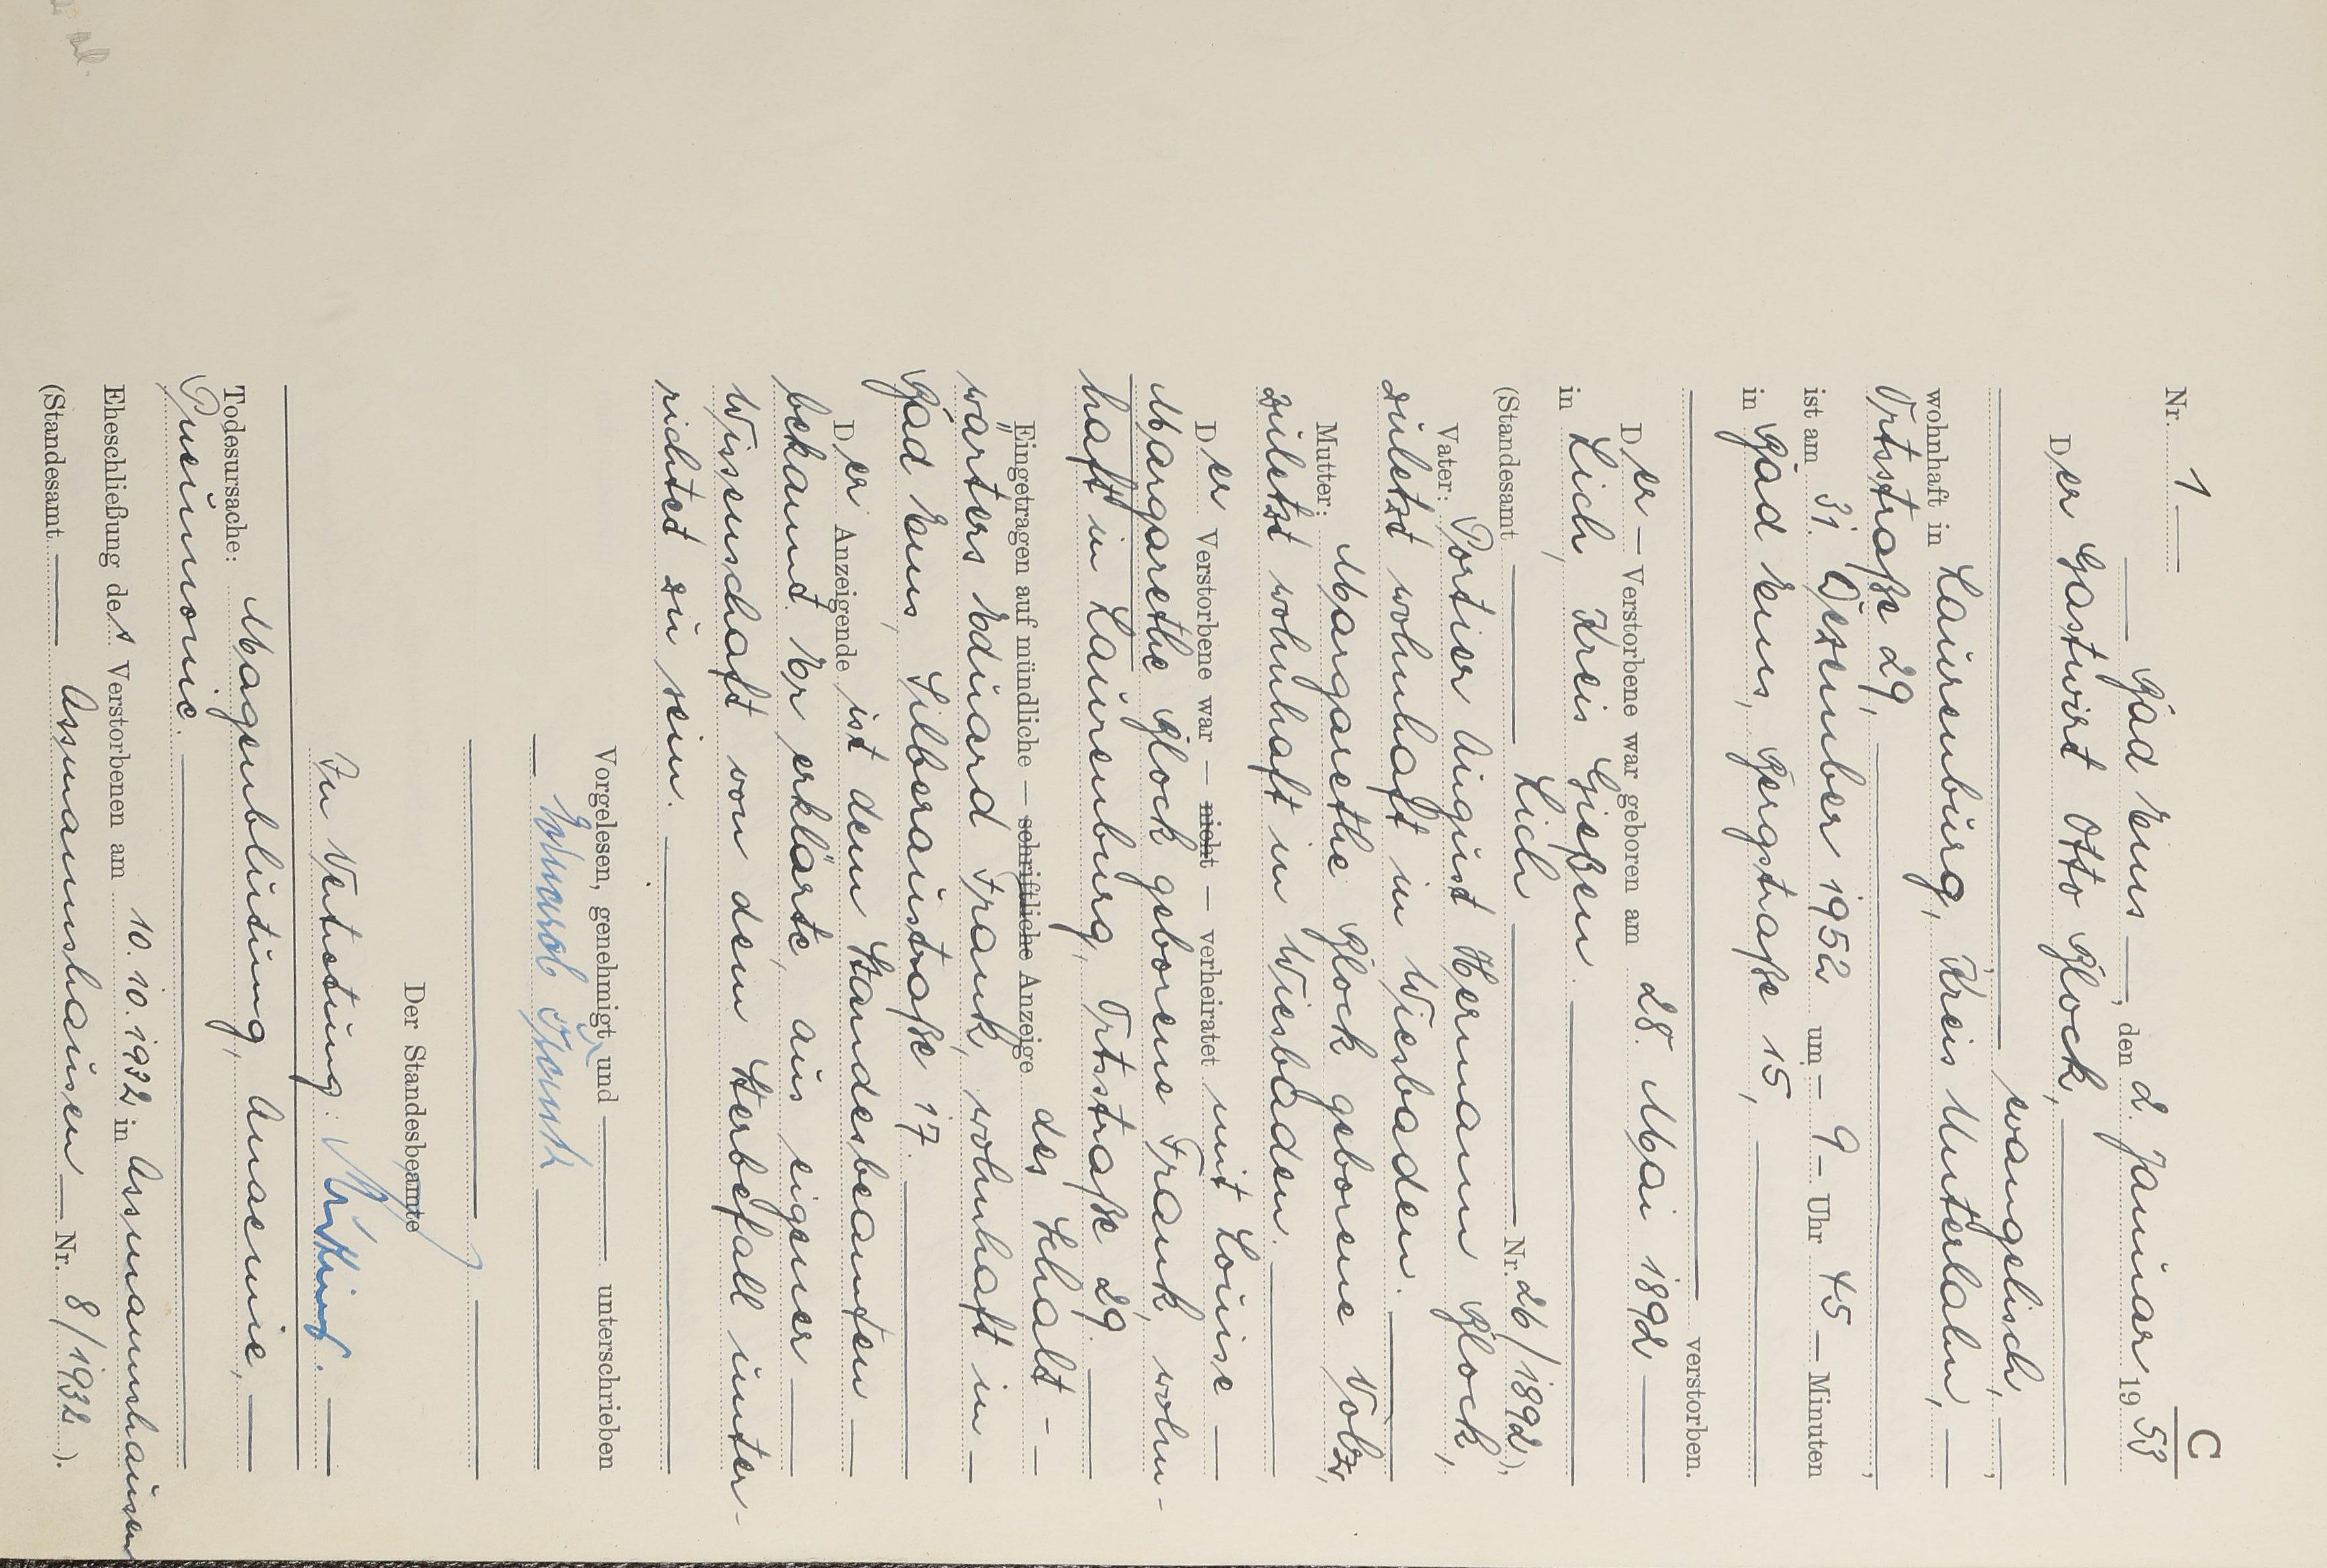 C
Nr. 1
Bad Ems, den 2. Januar 1953
Der Gastwirt Otto Glock,
evangelisch,
wohnhaft in Laurenburg, Kreis Unterlahn,
Ortsstraße 29,
ist am 31. Dezember 1952 um — 9 — Uhr 45 — Minuten
in Bad Ems, Bergstraße 15,
verstorben.
Der — Verstorbene war geboren am 28. Mai 1892
in Lich, Kreis Gießen.
(Standesamt Lich Nr. 26/1892),
Vater: Portier August Hermann Glock,
zuletzt wohnhaft in Wiesbaden.
Mutter: Margarethe Glock geborene Volz,
zuletzt wohnhaft in Wiesbaden.
Der Verstorbene war — nicht — verheiratet mit Louise
Margarethe Glock geborene Frank, wohn-
haft in Laurenburg, Ortsstraße 29.
Eingetragen auf mündliche — schriftliche Anzeige des Schalt-
wärters Eduard Frank, wohnhaft in
Bad Ems, Silberaustraße 17.
Der Anzeigende ist dem Standesbeamten
bekannt. Er erklärte, aus eigener
Wissenschaft von dem Sterbefall unter-
richtet zu sein.
Vorgelesen, genehmigt und unterschrieben
Eduard Frank
Der Standesbeamte
In Vertretung:
Todesursache: Magenblutung, Anaemie,
Pneumonie.
Eheschließung des Verstorbenen am 10.10.1932 in Assmannshausen
(Standesamt Assmannshausen Nr. 8/1932).